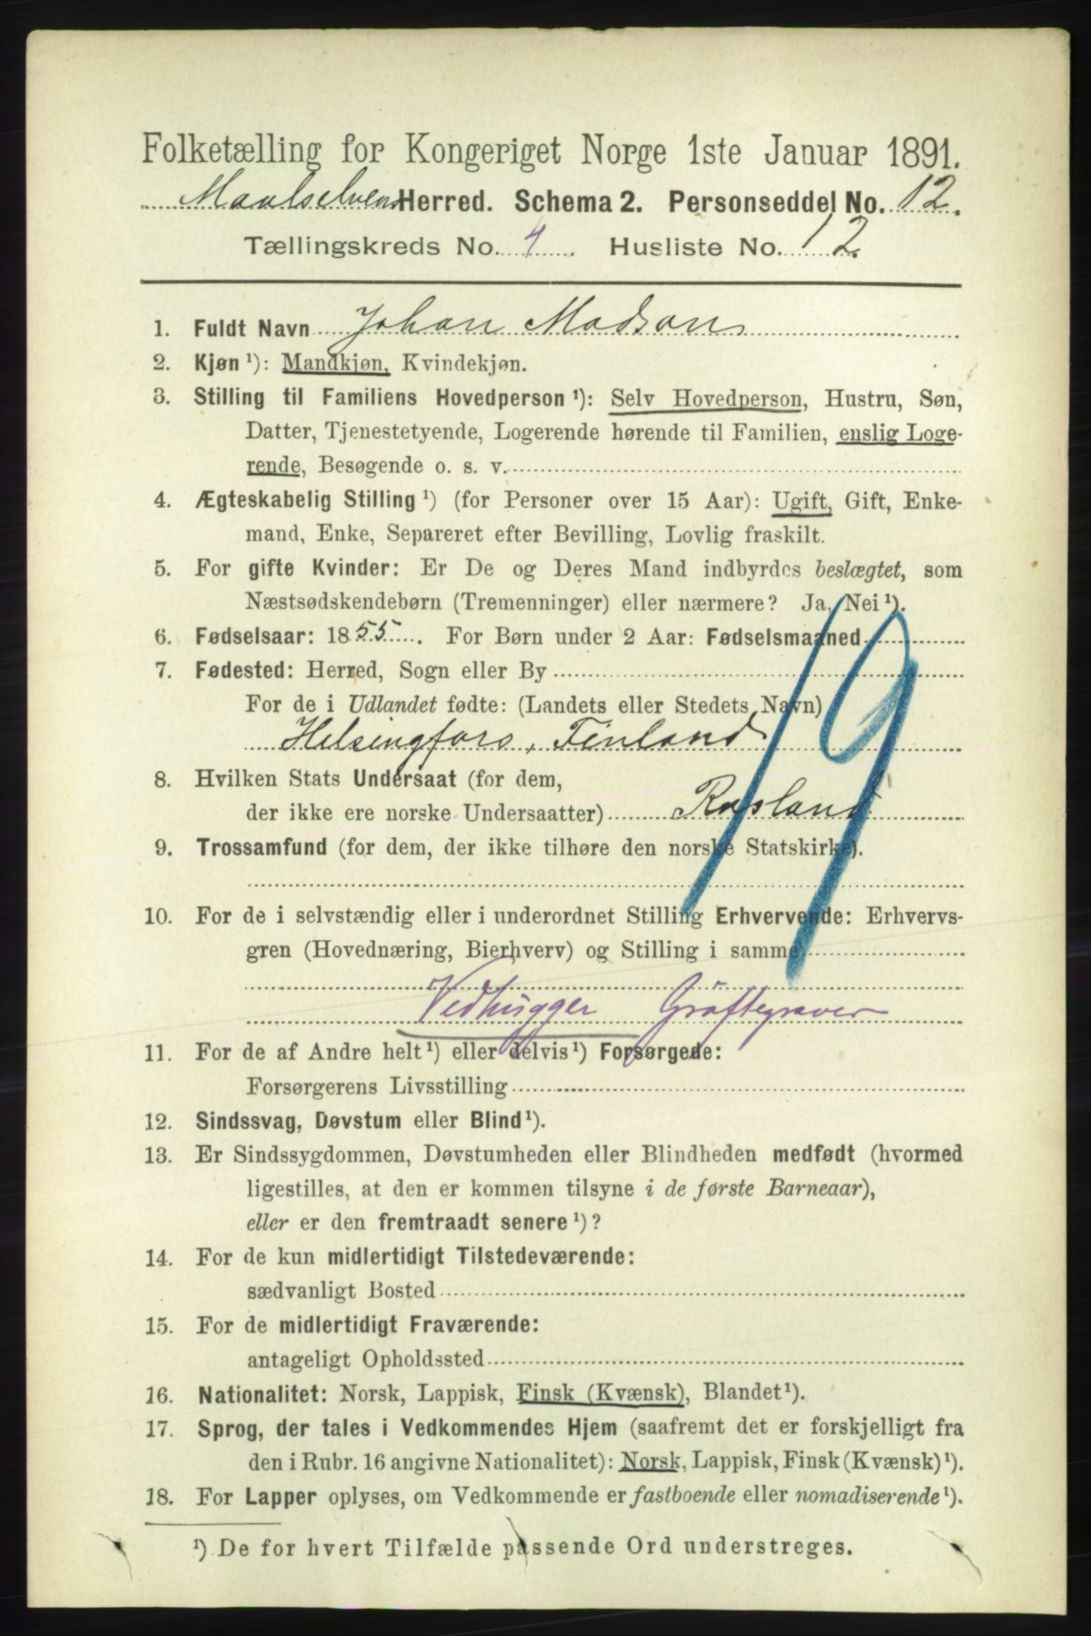 Folketælling for Kongeriget Norge 1ste Januar 1891.
Maalselvens Herred. Schema 2. Personseddel No. 12.
Tællingskreds No. 4. Husliste No. 12.
1. Fuldt Navn Johan Madson
2. Kjøn ¹): Mandkjøn, Kvindekjøn.
3. Stilling til Familiens Hovedperson ¹): Selv Hovedperson, Hustru, Søn,
Datter, Tjenestetyende, Logerende hørende til Familien, enslig Loge-
rende, Besøgende o. s. v.
4. Ægteskabelig Stilling ¹) (for Personer over 15 Aar): Ugift, Gift, Enke-
mand, Enke, Separeret efter Bevilling, Lovlig fraskilt.
5. For gifte Kvinder: Er De og Deres Mand indbyrdes beslægtet, som
Næstsødskendebørn (Tremenninger) eller nærmere? Ja, Nei ¹).
6. Fødselsaar: 1855. For Børn under 2 Aar: Fødselsmaaned
7. Fødested: Herred, Sogn eller By
For de i Udlandet fødte: (Landets eller Stedets Navn)
Helsingfors, Finland
19
8. Hvilken Stats Undersaat (for dem,
der ikke ere norske Undersaatter) Rusland
9. Trossamfund (for dem, der ikke tilhøre den norske Statskirke).
10. For de i selvstændig eller i underordnet Stilling Erhvervende: Erhvervs-
gren (Hovednæring, Bierhverv) og Stilling i samme
Vedhugger Grøftegraver
11. For de af Andre helt ¹) eller delvis ¹) Forsørgede:
Forsørgerens Livsstilling
12. Sindssvag, Døvstum eller Blind ¹).
13. Er Sindssygdommen, Døvstumheden eller Blindheden medfødt (hvormed
ligestilles, at den er kommen tilsyne i de første Barneaar),
eller er den fremtraadt senere ¹)?
14. For de kun midlertidigt Tilstedeværende:
sædvanligt Bosted
15. For de midlertidigt Fraværende:
antageligt Opholdssted
16. Nationalitet: Norsk, Lappisk, Finsk (Kvænsk), Blandet ¹).
17. Sprog, der tales i Vedkommendes Hjem (saafremt det er forskjelligt fra
den i Rubr. 16 angivne Nationalitet): Norsk, Lappisk, Finsk (Kvænsk) ¹).
18. For Lapper oplyses, om Vedkommende er fastboende eller nomadiserende ¹).
¹) De for hvert Tilfælde passende Ord understreges.